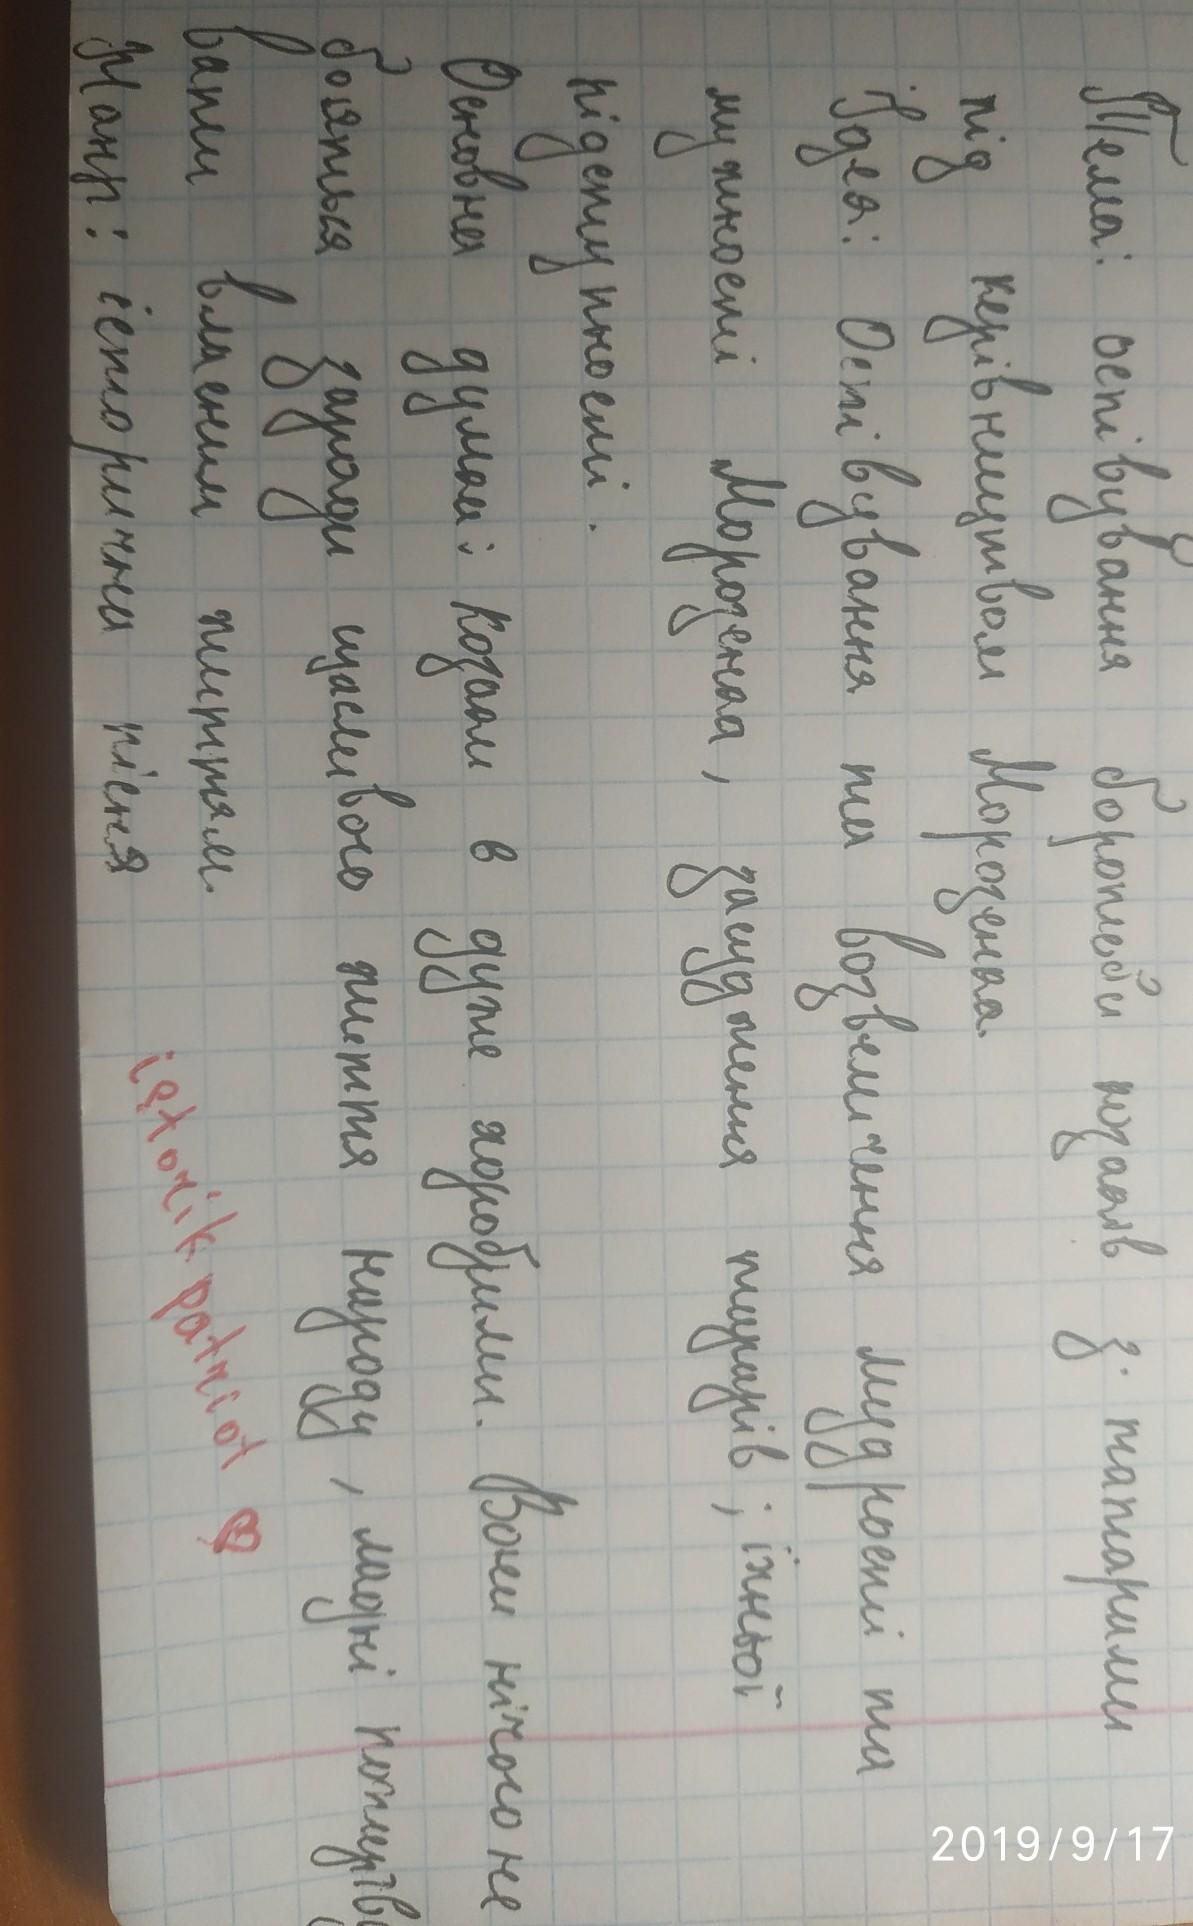 Тема: оспівування боротьби козаків з татарами
під керівництвом Морозенка.
Ідея: Оспівування та возвеличення мудрості та
мужності Морозенка, засудження татарів; їхньої
підступності.
Основна думка: козаки в дуже хоробрими. Вони нічого не
бояться заради щасливого життя народу, ладні пожертву
вати власним життям.
Жанр: історична пісня
istorik patriot ♡
2019/9/17